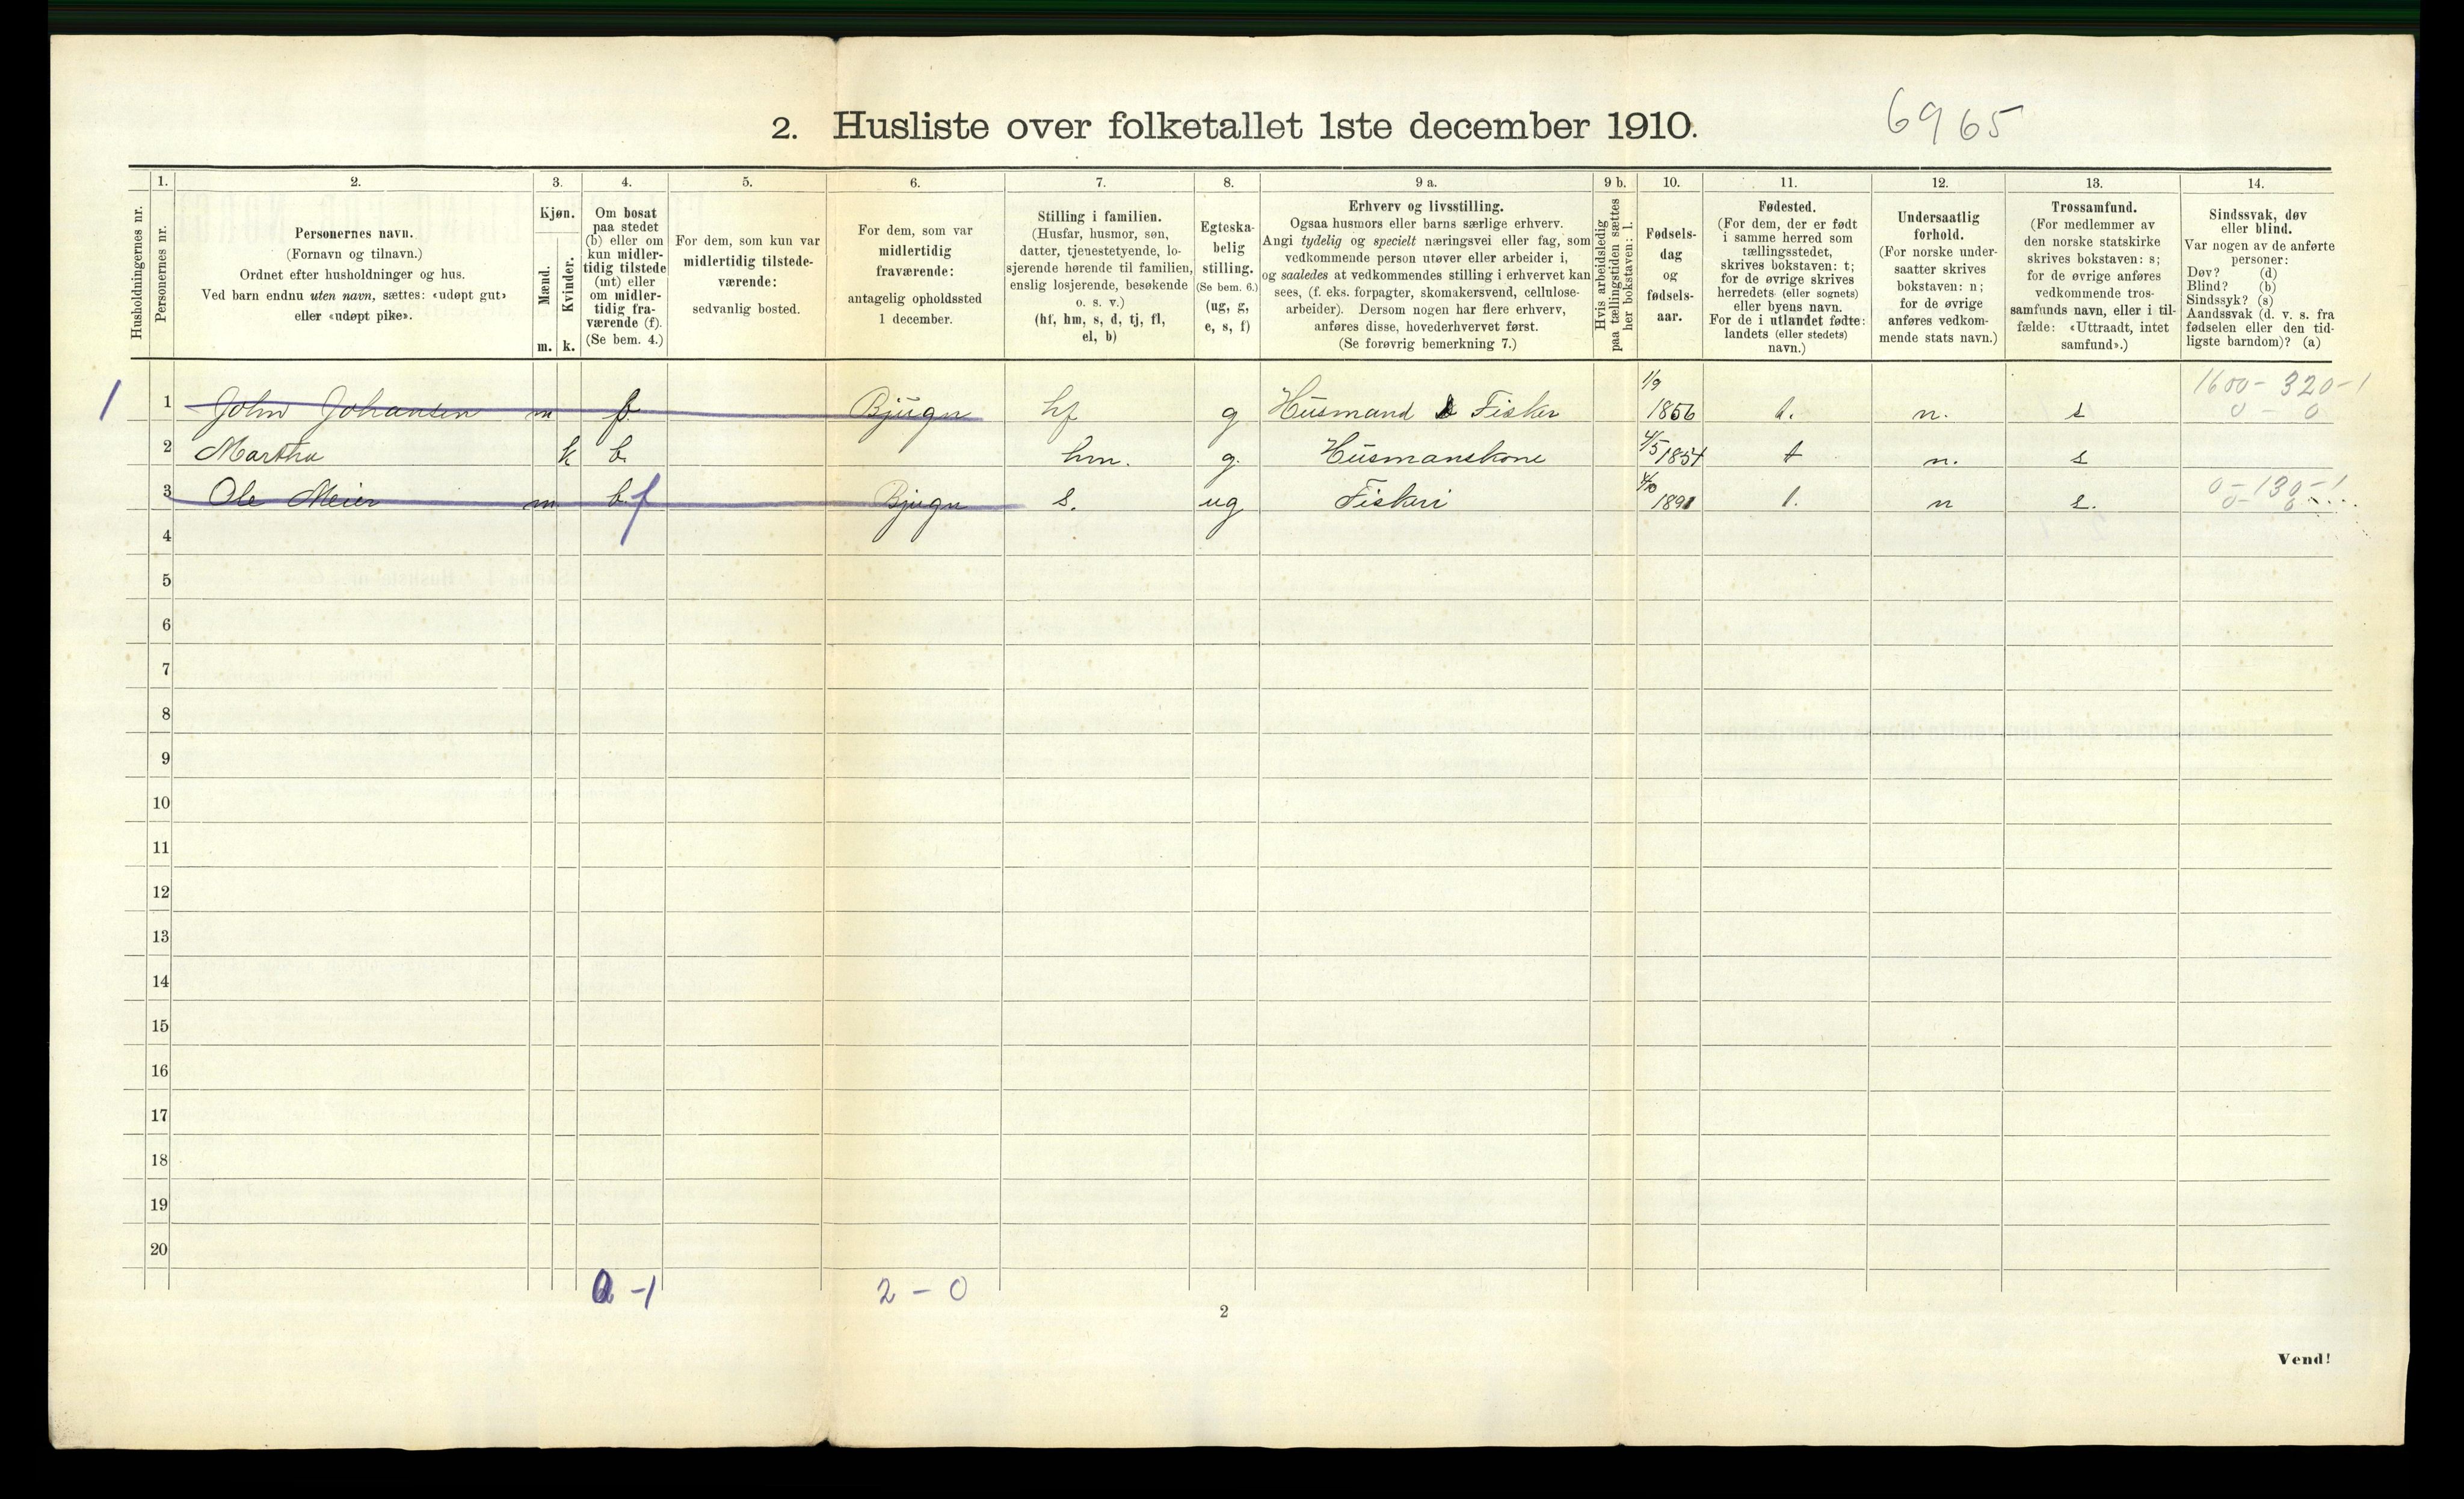 2. Husliste over folketallet 1ste december 1910.
6965
Husholdningernes nr.
1.
Personernes nr.
2.
Personernes navn.
(Fornavn og tilnavn.)
Ordnet efter husholdninger og hus.
Ved barn endnu uten navn, sættes: «udøpt gut»
eller «udøpt pike».
3.
Kjøn.
Mænd.
Kvinder.
m. k.
4.
Om bosat
paa stedet
(b) eller om
kun midler-
tidig tilstede
(mt) eller
om midler-
tidig fra-
værende (f).
(Se bem. 4.)
5.
For dem, som kun var
midlertidig tilstede-
værende:
sedvanlig bosted.
6.
For dem, som var
midlertidig
fraværende:
antagelig opholdssted
1 december.
7.
Stilling i familien.
(Husfar, husmor, søn,
datter, tjenestetyende, lo-
sjerende hørende til familien,
enslig losjerende, besøkende
o. s. v.)
(hf, hm, s, d, tj, fl,
el, b)
8.
Egteska-
belig
stilling.
(Se bem. 6.)
(ug, g,
e, s, f)
9 a.
Erhverv og livsstilling.
Ogsaa husmors eller barns særlige erhverv.
Angi tydelig og specielt næringsvei eller fag, som
vedkommende person utøver eller arbeider i,
og saaledes at vedkommendes stilling i erhvervet kan
sees, (f. eks. forpagter, skomakersvend, cellulose-
arbeider). Dersom nogen har flere erhverv,
anføres disse, hovederhvervet først.
(Se forøvrig bemerkning 7.)
9 b.
Hvis arbeidsledig
paa tællingstiden sættes
her bokstaven: l.
10.
Fødsels-
dag
og
fødsels-
aar.
11.
Fødested.
(For dem, der er født
i samme herred som
tællingsstedet,
skrives bokstaven: t;
for de øvrige skrives
herredets (eller sognets)
eller byens navn.
For de i utlandet fødte:
landets (eller stedets)
navn.)
12.
Undersaatlig
forhold.
(For norske under-
saatter skrives
bokstaven: n;
for de øvrige
anføres vedkom-
mende stats navn.)
13.
Trossamfund.
(For medlemmer av
den norske statskirke
skrives bokstaven: s;
for de øvrige anføres
vedkommende tros-
samfunds navn, eller i til-
fælde: «Uttraadt, intet
samfund».)
14.
Sindssvak, døv
eller blind.
Var nogen av de anførte
personer:
Døv? (d)
Blind? (b)
Sindssyk? (s)
Aandssvak (d. v. s. fra
fødselen eller den tid-
ligste barndom)? (a)
1 1 John Johansen m f Bjugn hf g Husmand & Fisker 1/9 1856 t. n. s 1600 - 320 - 1
0 - 0
2 Martha k b. hm. g. Husmanskone 4/5 1854 t n. s
3 Ole Meier m b. f Bjugn s. ug Fiskeri 1891 t. n s. 0 - 130 - 1
4
5
6
7
8
9
10
11
12
13
14
15
16
17
18
19
20
0 - 1 2 - 0
2
Vend!